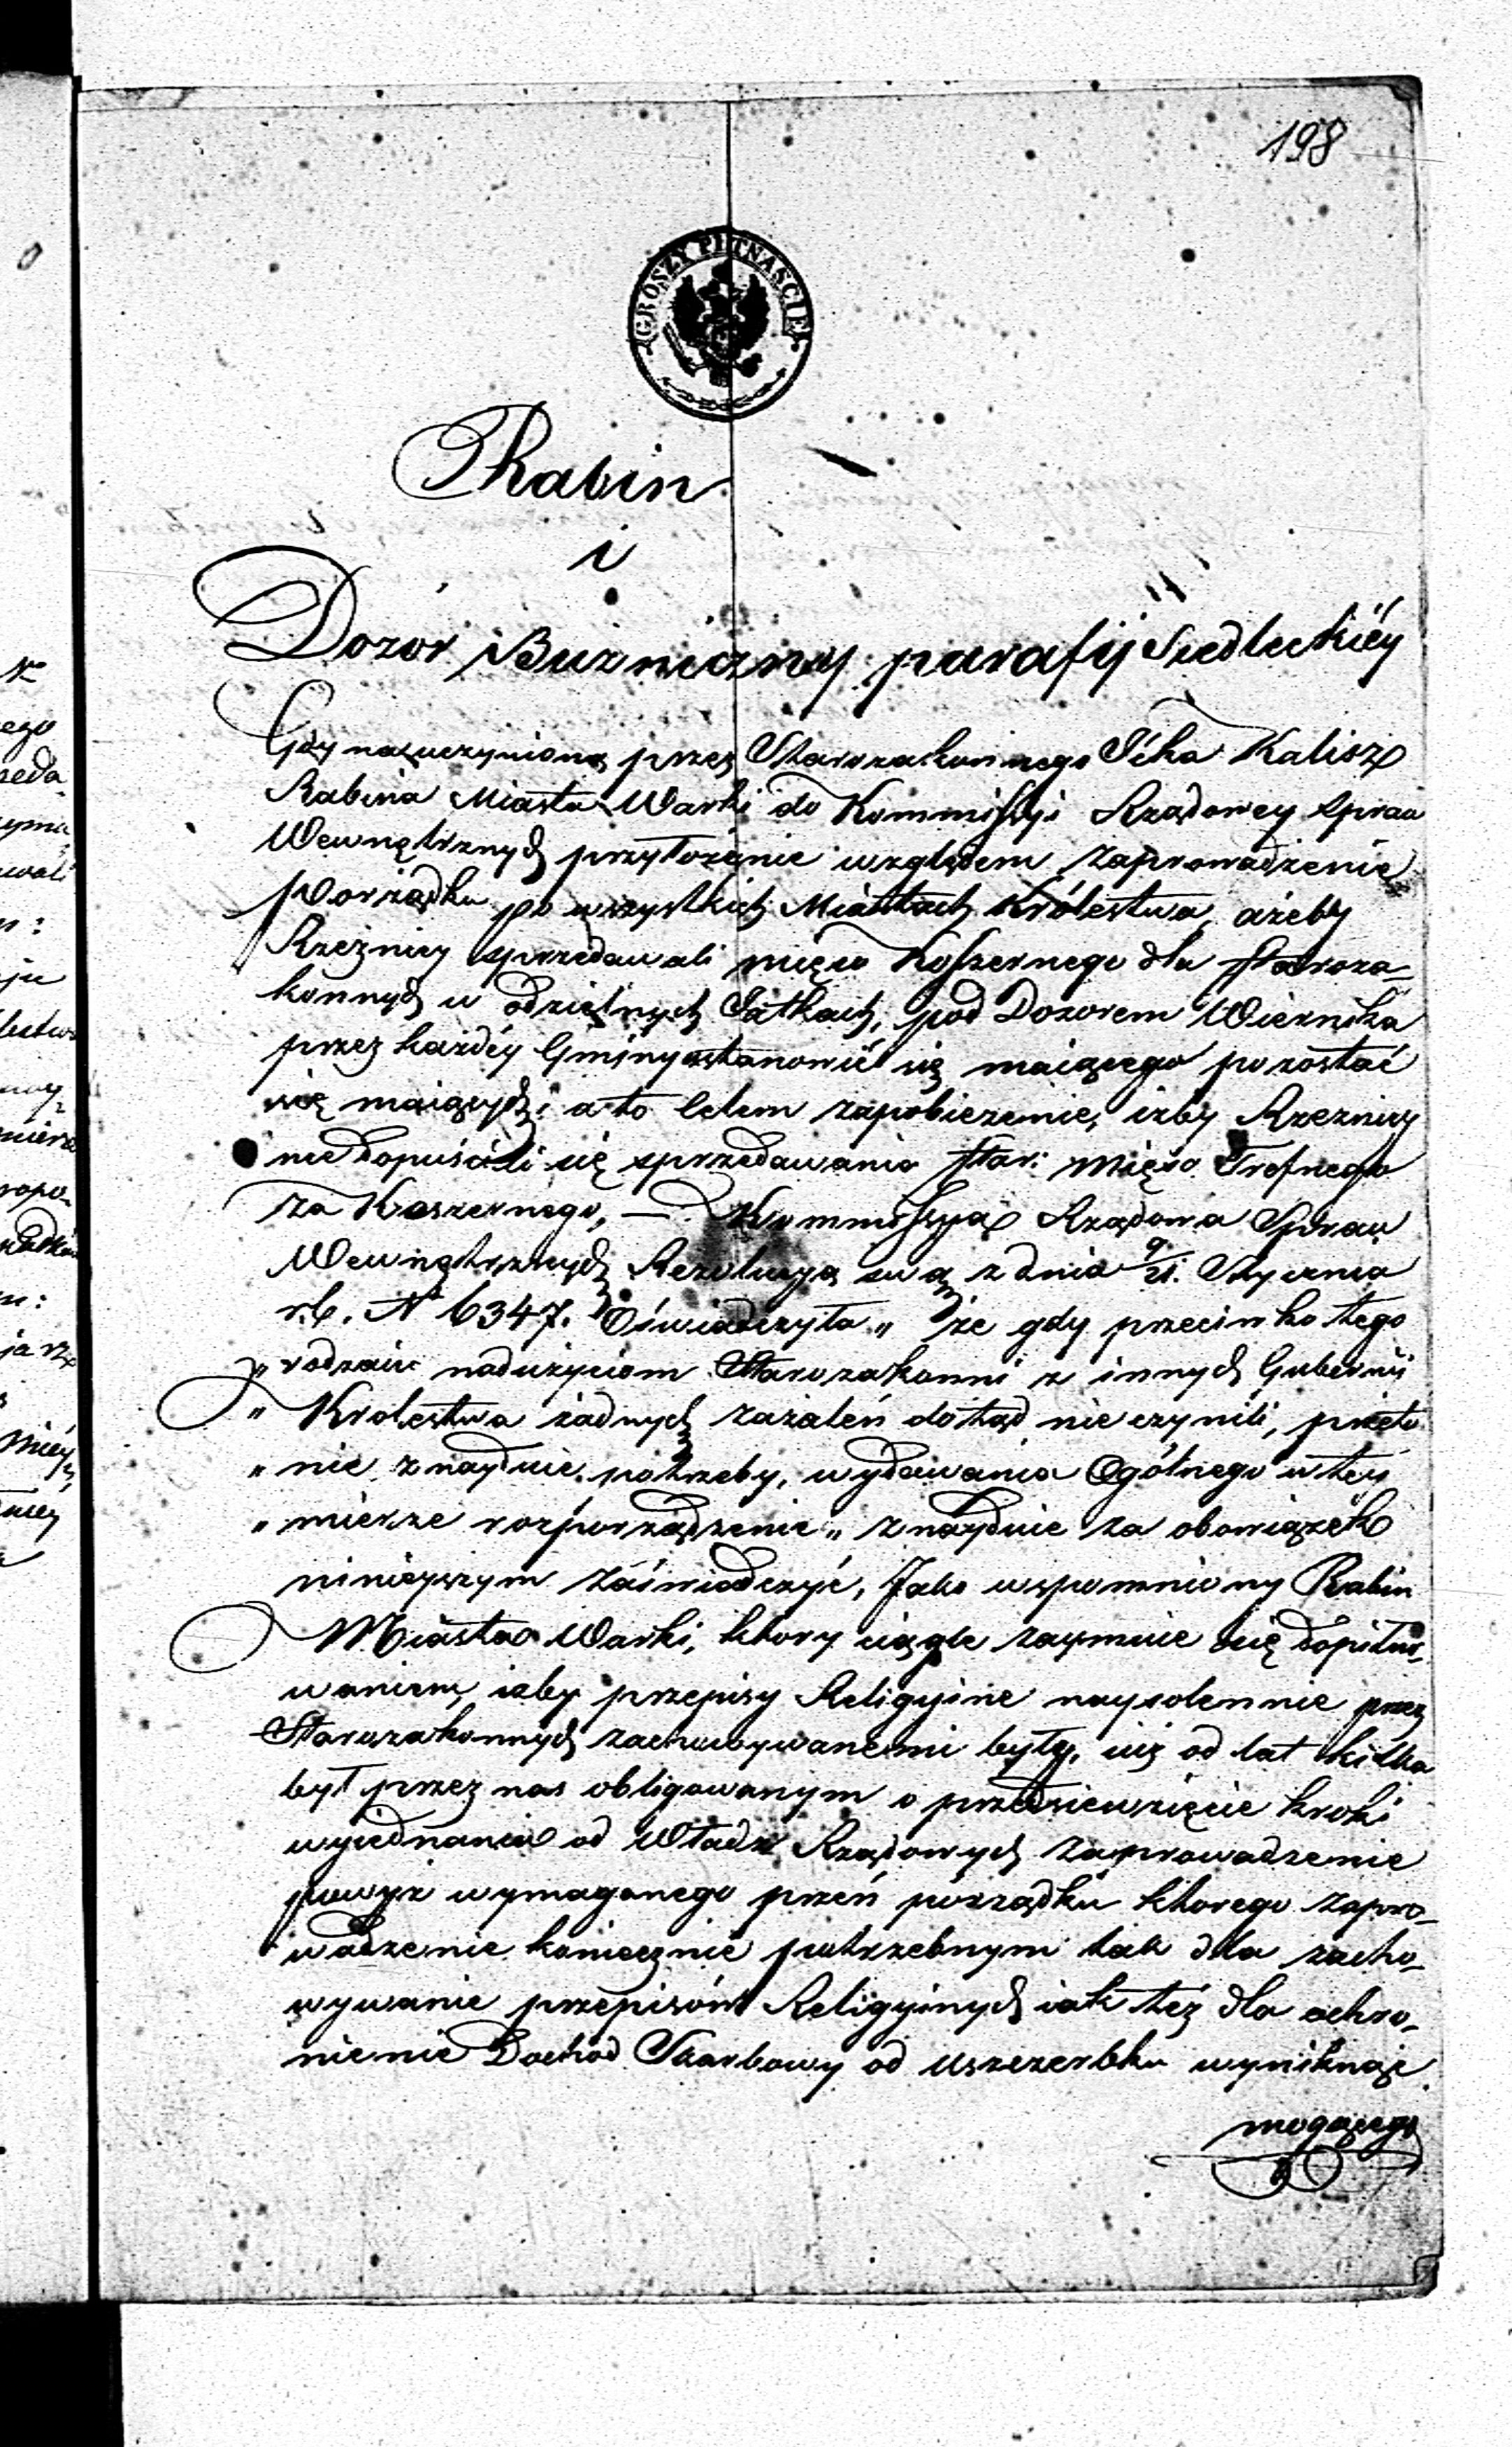 198
GROSZY PIĘTNAŚCIE
Rabin
i
Dozór Bużniczny parafij Siedleckiéy
Gdy na uczynione przez Starozakonnego Icka Kalisz
Rabina Miasta Warki do Kommissyi Rządowey Spraw
Wewnętrznych przyłożenie względem zaprowadzenie
porządku po wszystkich Miastach Królestwa, ażeby
Rzeźnicy sprzedawali mięso Koszernego dla Staroza-
konnych w odzielnych Jatkach, pod Dozorem Wiernika
przez każdéy Gminy ustanowić się maiącego pozostać
się maiących, a to celem zapobieżenie, iżby Rzeznicy
nie dopuścili się sprzedawania Star: mięso Trefnego
za Koszernego, — Kommissya Rządowa Spraw
Wewnętrznych Rezolucyą swą z dnia 9/21. Stycznia
r.b. N 6347. Oświadczyła „ że gdy przeciwko tego
„ rodzaiu nadużyciom Starozakonni z innych Gubernii
„ Krolestwa żadnych zażaleń dotąd nie czynili, przeto
„ nie znayduie potrzeby, wydawania Ogólnego w tey
„ mierze rozporządzenie „ znayduie za obowiązek
ninieyszym zaświadczyć, Jako wspomniony Rabin
Miasta Warki, ktory ciągle zaymuie się dopilno-
waniem, izby przepisy Religyine naysolennie przez
Starozakonnych zachowywanemi były, iuż od lat kilka
był przez nas obligowanym o przedsiewzięcie kroki
wyiednania od Władz Rządowych zaprowadzenie
powyż wymaganego przeń porządku ktorego zapro-
wadzenie koniecznie potrzebnym tak dla zacho-
wywanie przepisów Religyinych iak też dla ochro-
nienie Dochod Skarbowy od uszczerbku wyniknąć
mogącego